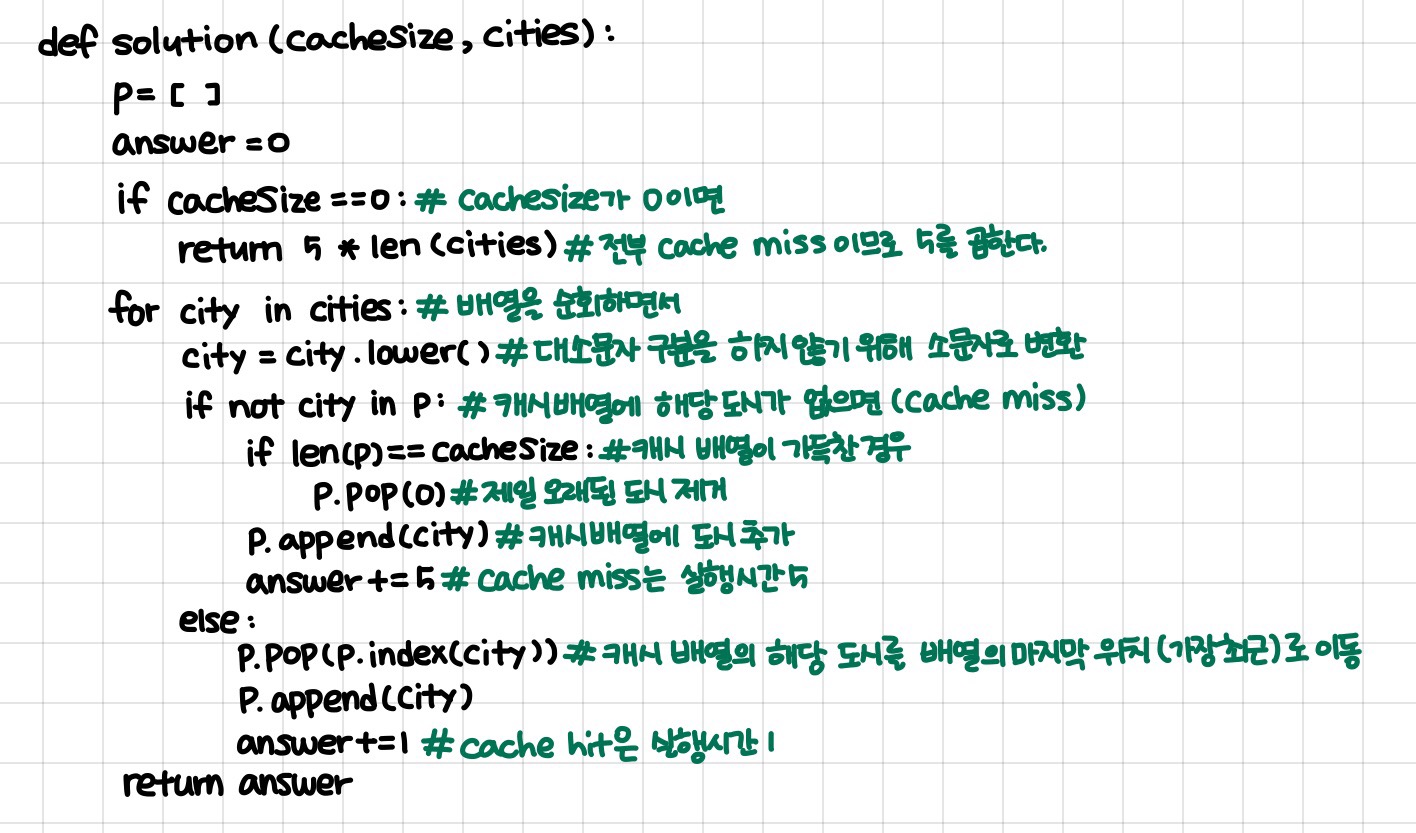 def solution (cacheSize, cities):
p= [ ]
answer =0
if cacheSize ==0: # cachesize가 0이면
return 5 * len (cities) # 전부 cache miss 이므로 5를 곱한다.
for city in cities: # 배열을 순회하면서
city = city.lower() # 대소문자 구분을 하지 않기 위해 소문자로 변환
if not city in p: # 캐시배열에 해당 도시가 없으면 (cache miss)
if len(p)== cacheSize: #캐시 배열이 가득찬 경우
p.pop(0) #제일 오래된 도시 제거
p.append(city) #캐시배열에 도시 추가
answer+=5 # cache miss는 실행시간 5
else:
p.pop(p.index(city)) # 캐시 배열의 해당 도시를 배열의 마지막 위치 (가장 최근)로 이동
p.append(city)
answer+=1 # cache hit은 실행시간 1
return answer